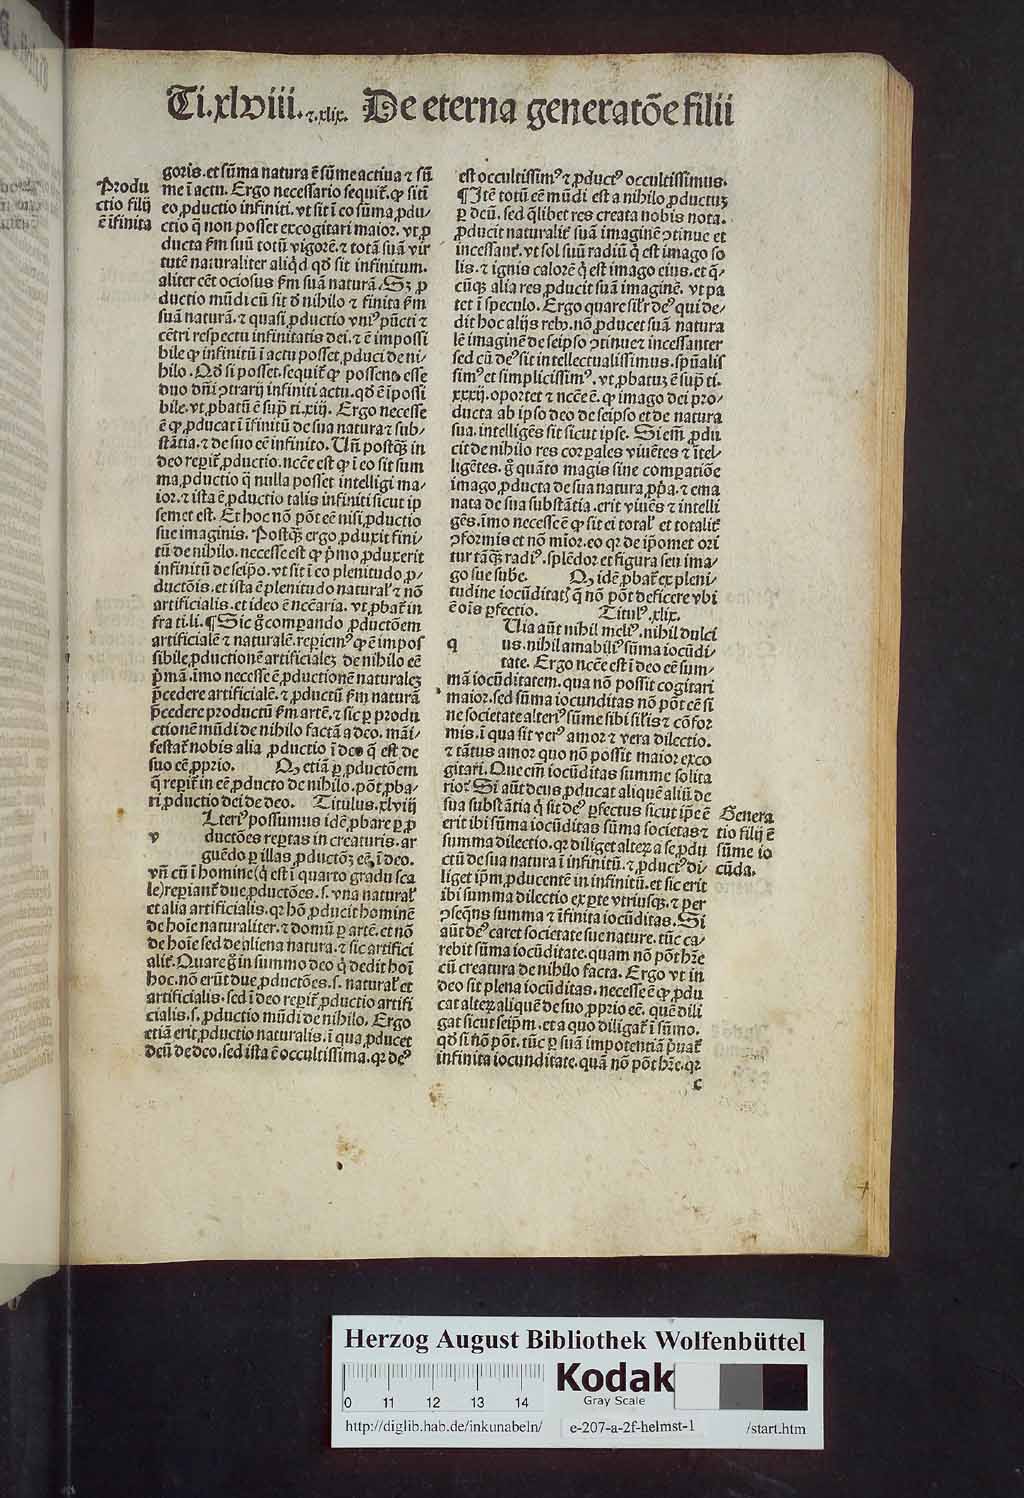 Ti.xlviii.⁊.xlix. De eterna generatōe filii
Produ
ctio filij
ē īfinita
goris.et sūma natura ē sūme actiua ⁊ sū
me ī actu. Ergo necessario sequit̄.ꝙ sit ī
eo ꝓductio infiniti.vt sit ī eo sūma ꝓdu/
ctio q̄ non posset excogitari maior. vt ꝓ
ducta ẜm suū totū vigorē.⁊ totā suā vir
tutē naturaliter aliq̇d qd̓ sit infinitum.
aliter eēt ociosus ẜm suā naturā. Sꝫ ꝓ
ductio mūdi cū sit d̓ nihilo ⁊ finita ẜm
suā naturā.⁊ quasi ꝓductio vniꝰ pūcti ⁊
cētri respectu infinitatis dei.⁊ ē impossi
bile ꝙ infinitū ī actu posset ꝓduci de ni/
hilo. Qd̓ si posset.sequit̄ ꝙ possent esse
duo dn̄i ↄtrarij infiniti actu.qd̓ ē īpossi
bile.vt ꝓbatū ē sup̄ ti.xiij. Ergo necesse
ē ꝙ ꝓducat ī īfinitū de sua natura ⁊ sub/
stātia.⁊ de suo eē infinito. Vn̄ postꝙ̄ in
deo reperit̄ ꝓductio.ncēe est ꝙ ī eo sit sum
ma ꝓductio q̄ nulla posset intelligi ma/
ior.⁊ ista ē ꝓductio talis infiniti sicut ip
semet est. Et hoc nō pōt eē nisi ꝓductio
sue imaginis. Postꝙ̄ ergo ꝓduxit fini/
tū de nihilo. necesse est ꝙ p̄mo ꝓduxerit
infinitū de seip̄o.vt sit ī eo plenitudo ꝓ/
ductōis.et ista ē plenitudo natural̓ ⁊ nō
artificialis.et ideo ē ncēaria. vt ꝓbat̄ in
fra ti.li. ¶ Sic g̊ comparando ꝓductōem
artificialē ⁊ naturalē.reperiemꝰ ꝙ ē impos
sibile ꝓductionē artificialeꝫ de nihilo eē
p̄mā.īmo necesse ē ꝓductionē naturaleꝫ
p̄cedere artificialē.⁊ ꝓductū ẜm naturā
p̄cedere productū ẜm artē.⁊ sic ꝑ produ
ctionē mūdi de nihilo factā a deo. māi/
festat̄ nobis alia ꝓductio ī deo q̄ est de
suo eē ꝓprio. Qꝫ etiā ꝑ ꝓductōem
q̄ reperit̄ in eē ꝓducto de nihilo.pōt ꝓba/
ri ꝓductio dei de deo. Titulus.xlviij
v
Lteriꝰ possumus idē ꝓbare ꝑ ꝓ
ductōes repertas in creaturis.ar
guēdo ꝑ illas ꝓductōꝫ eē ī deo.
vn̄ cū ī homine(q̇ est ī quarto gradu sca
le)repiant̄ due ꝓductōes.s. vna natural̓
et alia artificialis.qꝛ hō ꝓducit hominē
de hoīe naturaliter.⁊ domū ꝑ artē.et nō
de hoīe sed de aliena natura.⁊ sic artifici
alit̄. Quare g̊ in summo deo q̇ dedit hoī
hoc.nō erūt due ꝓductōes.s. natural̓ et
artificialis.sed ī deo reperit̄ ꝓductio artifi
cialis.s. ꝓductio mūdi de nihilo. Ergo
etiā erit ꝓductio naturalis.ī qua ꝓducet
deū de deo.sed ista ē occultissima.qꝛ deꝰ
est occultissimꝰ ⁊ ꝓductꝰ occultissimus.
¶ Itē totū eē mūdi est a nihilo ꝓductuꝫ
ꝑ deū. sed q̄libet res creata nobis nota.
ꝓducit naturalit̄ suā imaginē ↄtinue et
incessant̄.vt sol suū radiū q̇ est imago so
lis.⁊ ignis calorē q̇ est imago eius.et q̄/
cūqꝫ alia res ꝓducit suā imaginē. vt pa
tet ī speculo. Ergo quare sil̓r deꝰ qui de/
dit hoc alijs rebꝰ.nō ꝓducet suā natura
lē imaginē de seipso ↄtinue ⁊ incessanter
sed cū deꝰ sit intellectualissimus.spūalis
simꝰ et simplicissimꝰ.vt ꝓbatuꝫ ē sup̄ ti.
xxxij.oportet ⁊ ncēe ē.ꝙ imago dei pro/
ducta ab ipso deo de seipso et de natura
sua.intelligēs sit sicut ipse. Si em̄ ꝓdu
cit de nihilo res corꝑales viuētes ⁊ ītel/
ligētes.g̊ quāto magis sine comꝑatiōe
imago ꝓducta de sua natura ꝓp̄a.⁊ ema
nata de sua substātia.erit viuēs ⁊ intelli
gēs.īmo necesse ē ꝙ sit ei total̓ et totalit̄
ↄformis et nō mīor.eo qꝛ de ip̄omet ori
tur tāꝙ̄ radiꝰ.splēdor et figura seu ima/
go sue sub̄e. Qꝫ idē ꝓbat̄ ex pleni/
tudine iocūditatꝭ q̄ nō pōt deficere vbi
ē oīs ꝑfectio. Titulꝰ.xlix.
q
Uia aūt nihil meliꝰ.nihil dulci
us.nihil amabiliꝰ sūma iocūdi/
tate. Ergo ncēe est ī deo eē sum/
mā iocūditatem.qua nō possit cogitari
maior.sed sūma iocunditas nō pōt eē si
ne societate alteriꝰ sūme sibi sil̓is ⁊ cōfor
mis.ī qua sit verꝰ amor ⁊ vera dilectio.
⁊ tātus amor quo nō possit maior exco
gitari. Que em̄ iocūditas summe solita
rio? Si aūt deus ꝓducat aliquē aliū de
sua substātia q̇ sit deꝰ ꝑfectus sicut ip̄e ē
erit ibi sūma iocūditas sūma societas ⁊
summa dilectio.qꝛ diliget alteꝝ a se ꝓdu
ctū de sua natura ī infinitū.⁊ ꝓductꝰ di/
liget ip̄m ꝓducentē in infinitū.et sic erit
ibi summa dilectio ex ꝑte vtriusqꝫ.⁊ per
ↄseq̄ns summa ⁊ īfinita iocūditas. Si
aūt deꝰ caret societate sue nature. tūc ca/
rebit sūma iocūditate.quam nō pōt hr̄e
cū creatura de nihilo facta. Ergo vt in
deo sit plena iocūditas. necesse ē ꝙ ꝓdu
cat alteꝝ aliquē de suo ꝓprio eē. quē dili
gat sicut seip̄m.et a quo diligat̄ ī sūmo.
qd̓ si nō pōt. tūc ꝑ suā impotentiā p̄uat̄
infinita iocunditate.quā nō pōt hr̄e.qꝛ
Genera
tio filij ē
sūme io
cūda.
c
Herzog August Bibliothek Wolfenbüttel
0 11 12 13 14
Kodak
Gray Scale
http://diglib.hab.de/inkunabeln/ e-207-a-2f-helmst-1 /start.htm